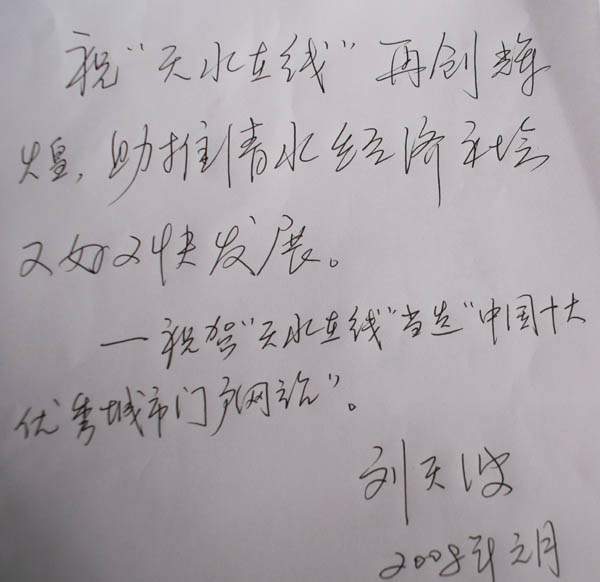 祝“天水在线”再创辉
煌，助推清水经济社会
又好又快发展。
—祝贺“天水在线”当选“中国十大
优秀城市门户网站”。
刘天波
2008年元月